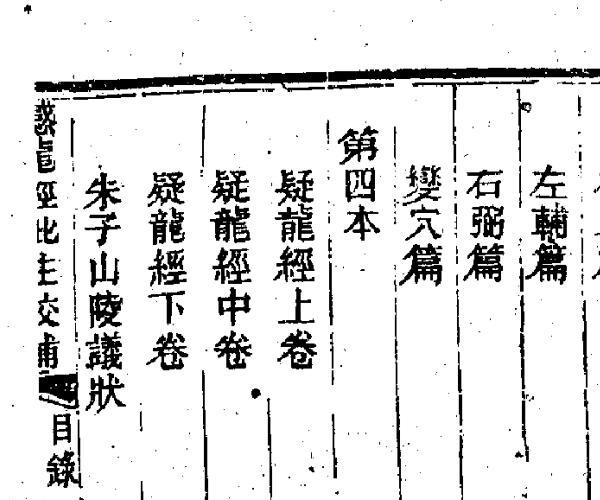 左輔篇
右弼篇
變穴篇
第四本
疑龍經上卷
疑龍經中卷
疑龍經下卷
朱子山陵議狀
龍經批注校補
目錄